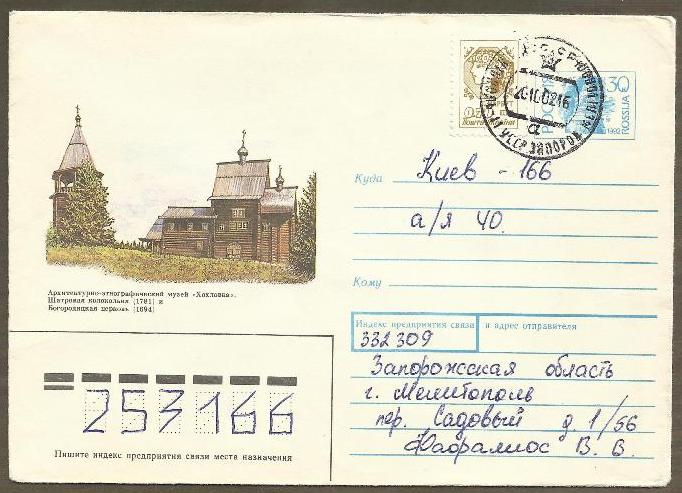 30
РОССИЯ
ROSSIJA
1992
Пошта України
20.10.02 16
УССР ЗАПОРОЖ
а
Куда Киев - 166
а/я 40.
Кому
Архитектурно-этнографический музей «Хохловка».
Шатровая колокольня (1781) и
Богородицкая церковь (1694)
Индекс предприятия связи и адрес отправителя
332309
Запорожская область
г. Мелитополь
пер. Садовый д. 1/56
В. В.
253166
Пишите индекс предприятия связи места назначения